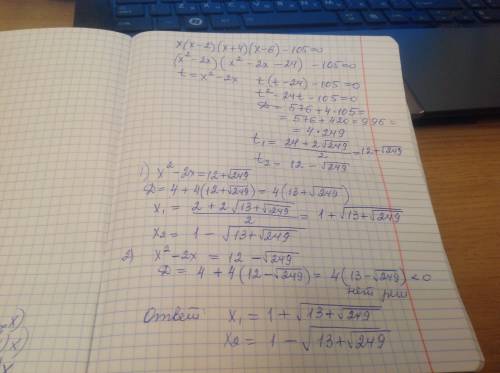 x(x-2)(x+4)(x-6)-105=0
(x²-2x)(x²-2x-24)-105=0
t=x²-2x t(t-24)-105=0
t²-24t-105=0
D=576+4·105=
=576+420=996=
=4·249
t₁=(24+2√249)/2=12+√249
t₂=12-√249
1) x²-2x=12+√249
D=4+4(12+√249)=4(13+√249)
x₁=(2+2√(13+√249))/2=1+√(13+√249)
x₂=1-√(13+√249)
2) x²-2x=12-√249
D=4+4(12-√249)=4(13-√249)<0
нет реш
Ответ x₁=1+√(13+√249)
x₂=1-√(13+√249)